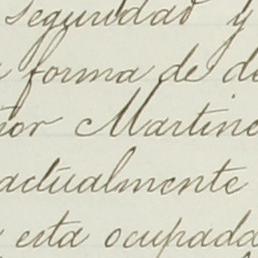 seguridad y
forma de de
ñor Martine
actualmente
esta ocupada